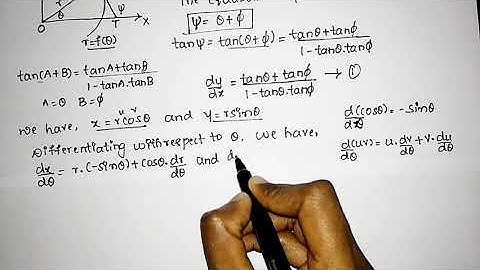 r
θ
ψ
O
T
X
r=f(θ)
ψ = θ+ϕ
tanψ = tan(θ+ϕ) = tanθ+tanϕ / 1-tanθ.tanϕ
tan(A+B) = tanA+tanB / 1-tanA.tanB
A=θ B=ϕ
dy/dx = tanθ+tanϕ / 1-tanθ.tanϕ → ①
u v
We have, x=rcosθ and y=rsinθ
d(cosθ)/dθ = -sinθ
Differentiating with respect to θ. We have,
d(uv)/dθ = u.dv/dθ + v.du/dθ
dx/dθ = r.(-sinθ)+cosθ.dr/dθ and d